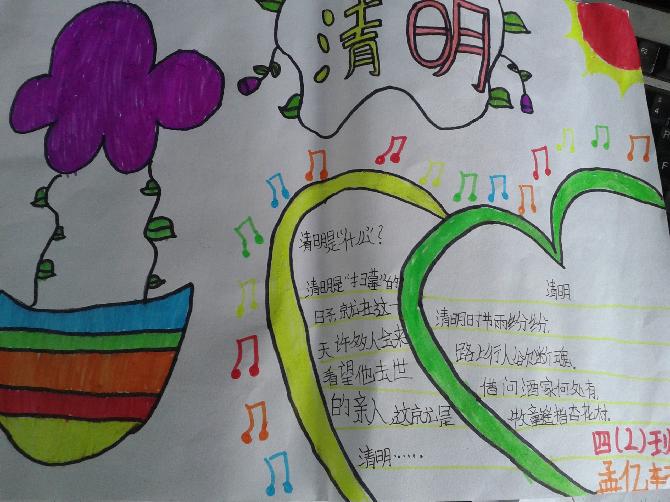 清明
清明是“什么”？
清明是“扫墓”的
日子，就在这
天许多人会来
看望他去世
的亲人，这就是
清明……
清明
清明时节雨纷纷，
路上行人欲断魂。
借问酒家何处有，
牧童遥指杏花村。
四(2)班
孟亿